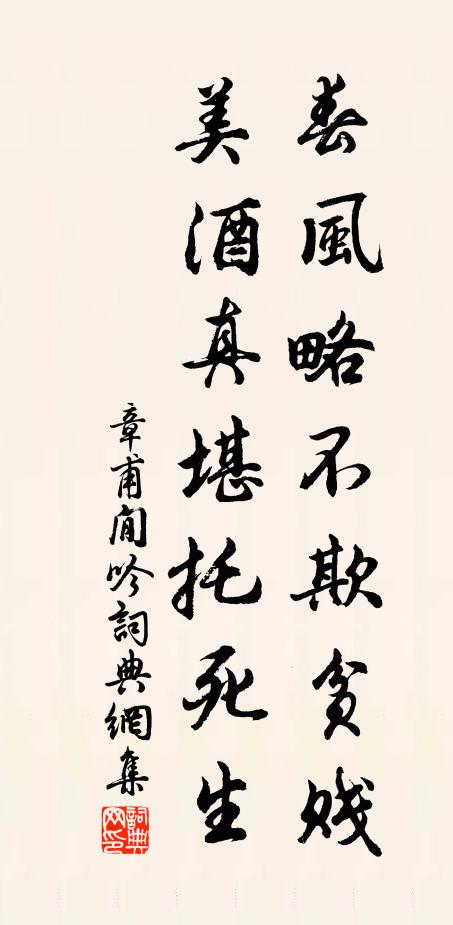 春風略不欺貧賤
美酒真堪托死生
章甫閒吟詞典網集
詞典網印